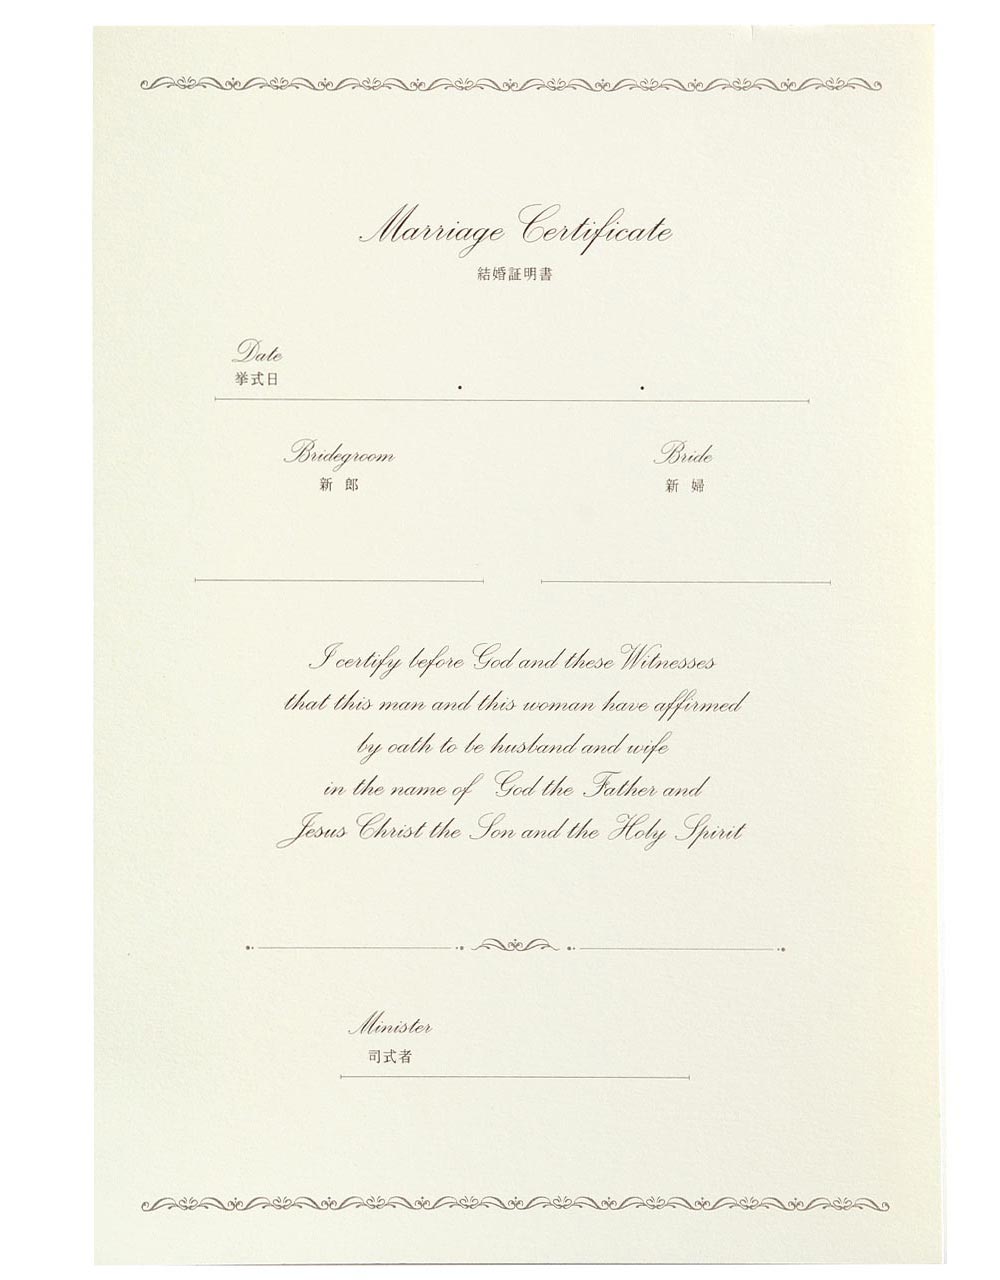 Marriage Certificate
結婚証明書
Date
挙式日
Bridegroom
新 郎
Bride
新 婦
I certify before God and these Witnesses
that this man and this woman have affirmed
by oath to be husband and wife
in the name of God the Father and
Jesus Christ the Son and the Holy Spirit
Minister
司式者